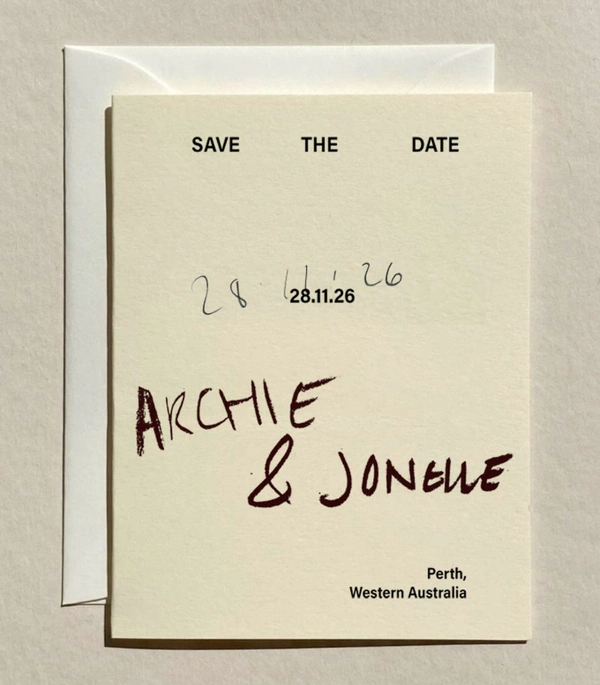 SAVE THE DATE
28.11.26
28.11.26
ARCHIE
& JONELLE
Perth,
Western Australia